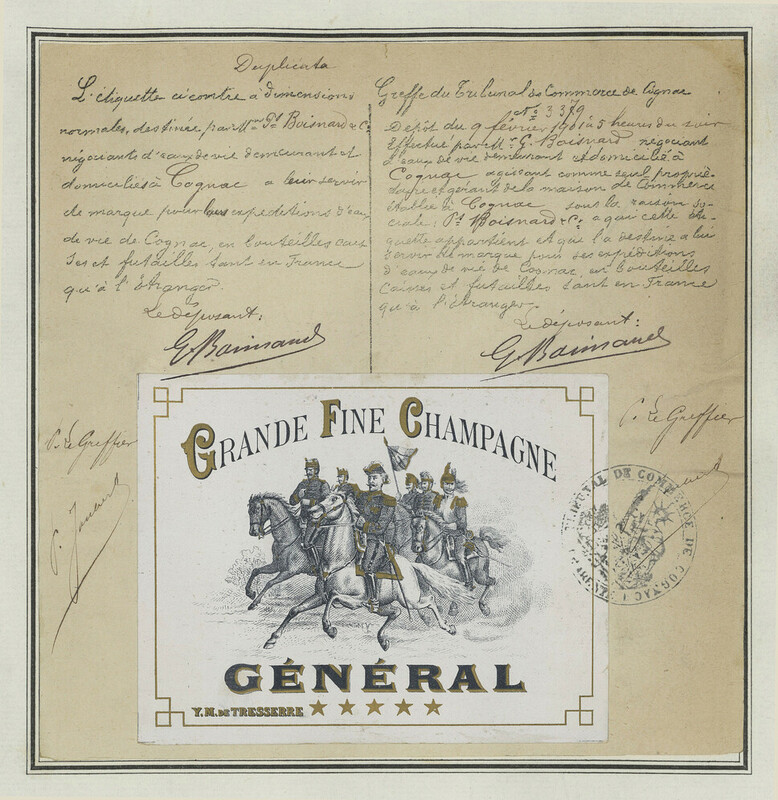 Duplicata
L'étiquette ci contre à dimensions
normales, destinée par Boisnard & Co
négociants d'eaux de vie demeurant et
domiciliés à Cognac a leur servir
de marque pour leurs expéditions d'eaux
de vie de Cognac, en bouteilles cais
ses et futailles tant en France
qu'à l'étranger.
Le déposant:
G. Boisnard
Greffe du Tribunal de Commerce de Cognac
No 3379
Dépôt du 9 février 1901 à 5 heures du soir
effectué par Mr G. Boisnard négociant
d'eaux de vie demeurant et domicilié à
Cognac agissant comme seul proprié-
taire et gérant de la maison de Commerce
établie à Cognac sous la raison so-
ciale: Boisnard & Co a qui cette éti-
quette appartient et qui l'a destinée a lui
servir de marque pour ses expéditions
d'eaux de vie de Cognac, en bouteilles
Caisses et futailles tant en France
qu'à l'étranger.
Le déposant:
G. Boisnard
P. Le Greffier
P. Le Greffier
TRIBUNAL DE COMMERCE DE COGNAC
GRANDE FINE CHAMPAGNE
GÉNÉRAL
Y. M. DE TRESSERRE